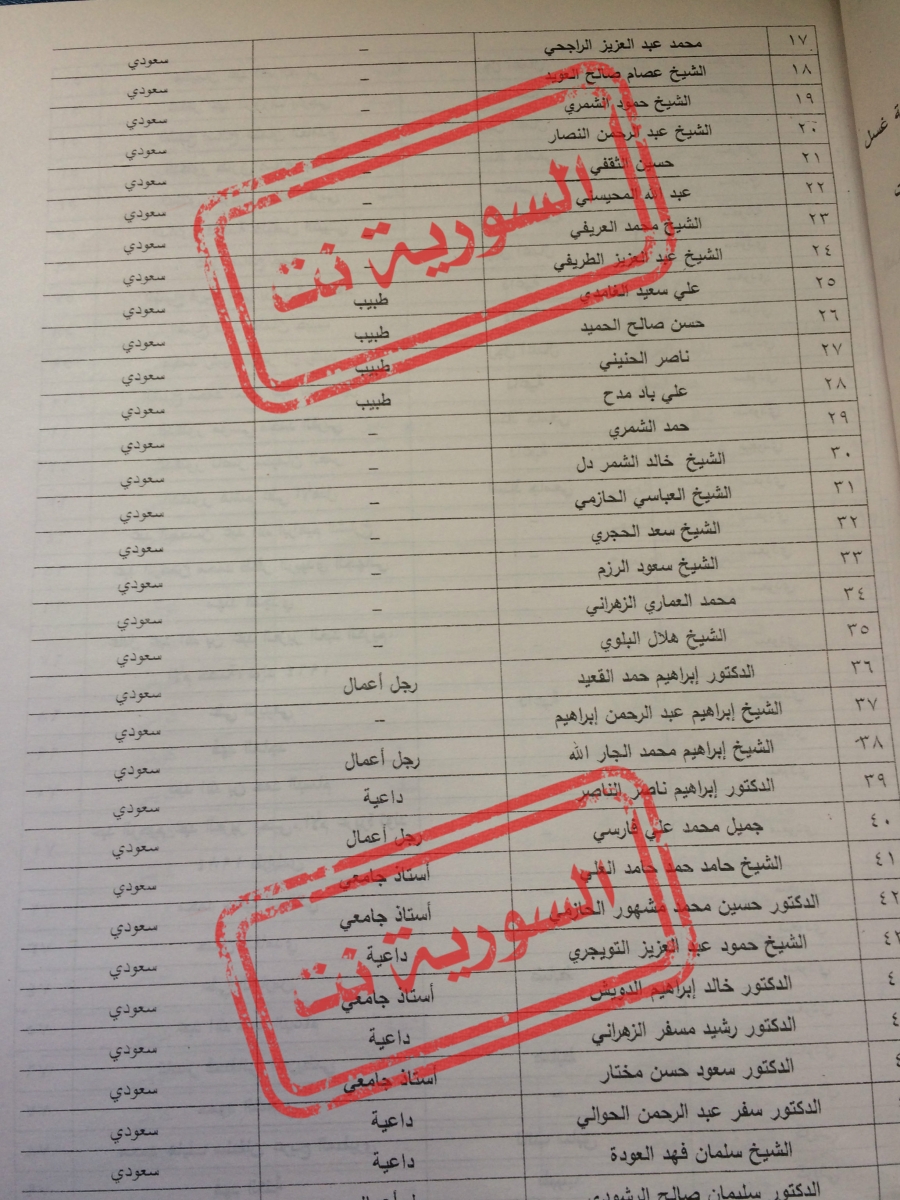 ١٧ محمد عبد العزيز الراجحي – سعودي
١٨ الشيخ عصام صالح العويد – سعودي
١٩ الشيخ حمود الشمري – سعودي
٢٠ الشيخ عبد الرحمن النصار سعودي
٢١ حسين الثقفي – سعودي
٢٢ عبد الله المحيسني – سعودي
٢٣ الشيخ محمد العريفي سعودي
٢٤ الشيخ عبد العزيز الطريفي – سعودي
٢٥ علي سعيد الغامدي طبيب سعودي
٢٦ حسن صالح الحميد طبيب سعودي
٢٧ ناصر الحنيني طبيب سعودي
٢٨ علي باد مدح طبيب سعودي
٢٩ حمد الشمري – سعودي
٣٠ الشيخ خالد الشمر دل – سعودي
٣١ الشيخ العباسي الحازمي – سعودي
٣٢ الشيخ سعد الحجري – سعودي
٣٣ الشيخ سعود الرزم – سعودي
٣٤ محمد العماري الزهراني – سعودي
٣٥ الشيخ هلال البلوي – سعودي
٣٦ الدكتور إبراهيم حمد القعيد رجل أعمال سعودي
٣٧ الشيخ إبراهيم عبد الرحمن إبراهيم – سعودي
٣٨ الشيخ إبراهيم محمد الجار الله رجل أعمال سعودي
٣٩ الدكتور إبراهيم ناصر الناصر داعية سعودي
٤٠ جميل محمد علي فارسي رجل أعمال سعودي
٤١ الشيخ حامد حمد حامد العلي أستاذ جامعي سعودي
٤٢ الدكتور حسين محمد مشهور الحازمي أستاذ جامعي سعودي
الشيخ حمود عبد العزيز التويجري داعية سعودي
الدكتور خالد إبراهيم الدويش أستاذ جامعي سعودي
الدكتور رشيد مسفر الزهراني داعية سعودي
الدكتور سعود حسن مختار أستاذ جامعي سعودي
الدكتور سفر عبد الرحمن الحوالي داعية سعودي
الشيخ سلمان فهد العودة داعية سعودي
الدكتور سليمان صالح الرشودي
السورية نت
السورية نت
غسل